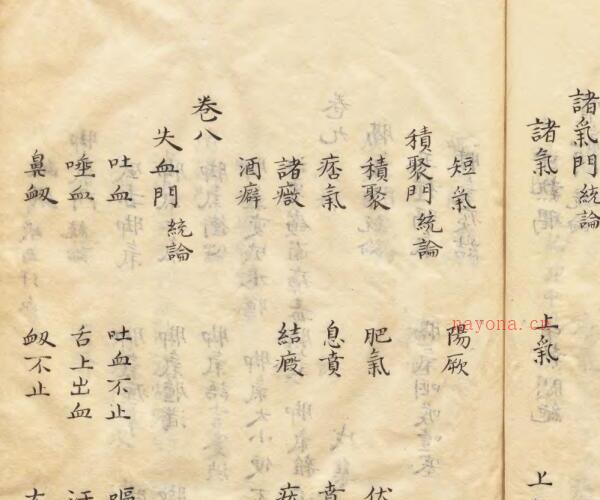 諸氣門統論
諸氣 上氣 上
短氣 陽厥
積聚門統論
積聚 肥氣 伏
痞氣 息賁 賁
諸癥 結瘕
酒癖
卷八
失血門統論
吐血 吐血不止 嘔
唾血 舌上出血 汗
鼻衂 衂不止 大
nayona.cn